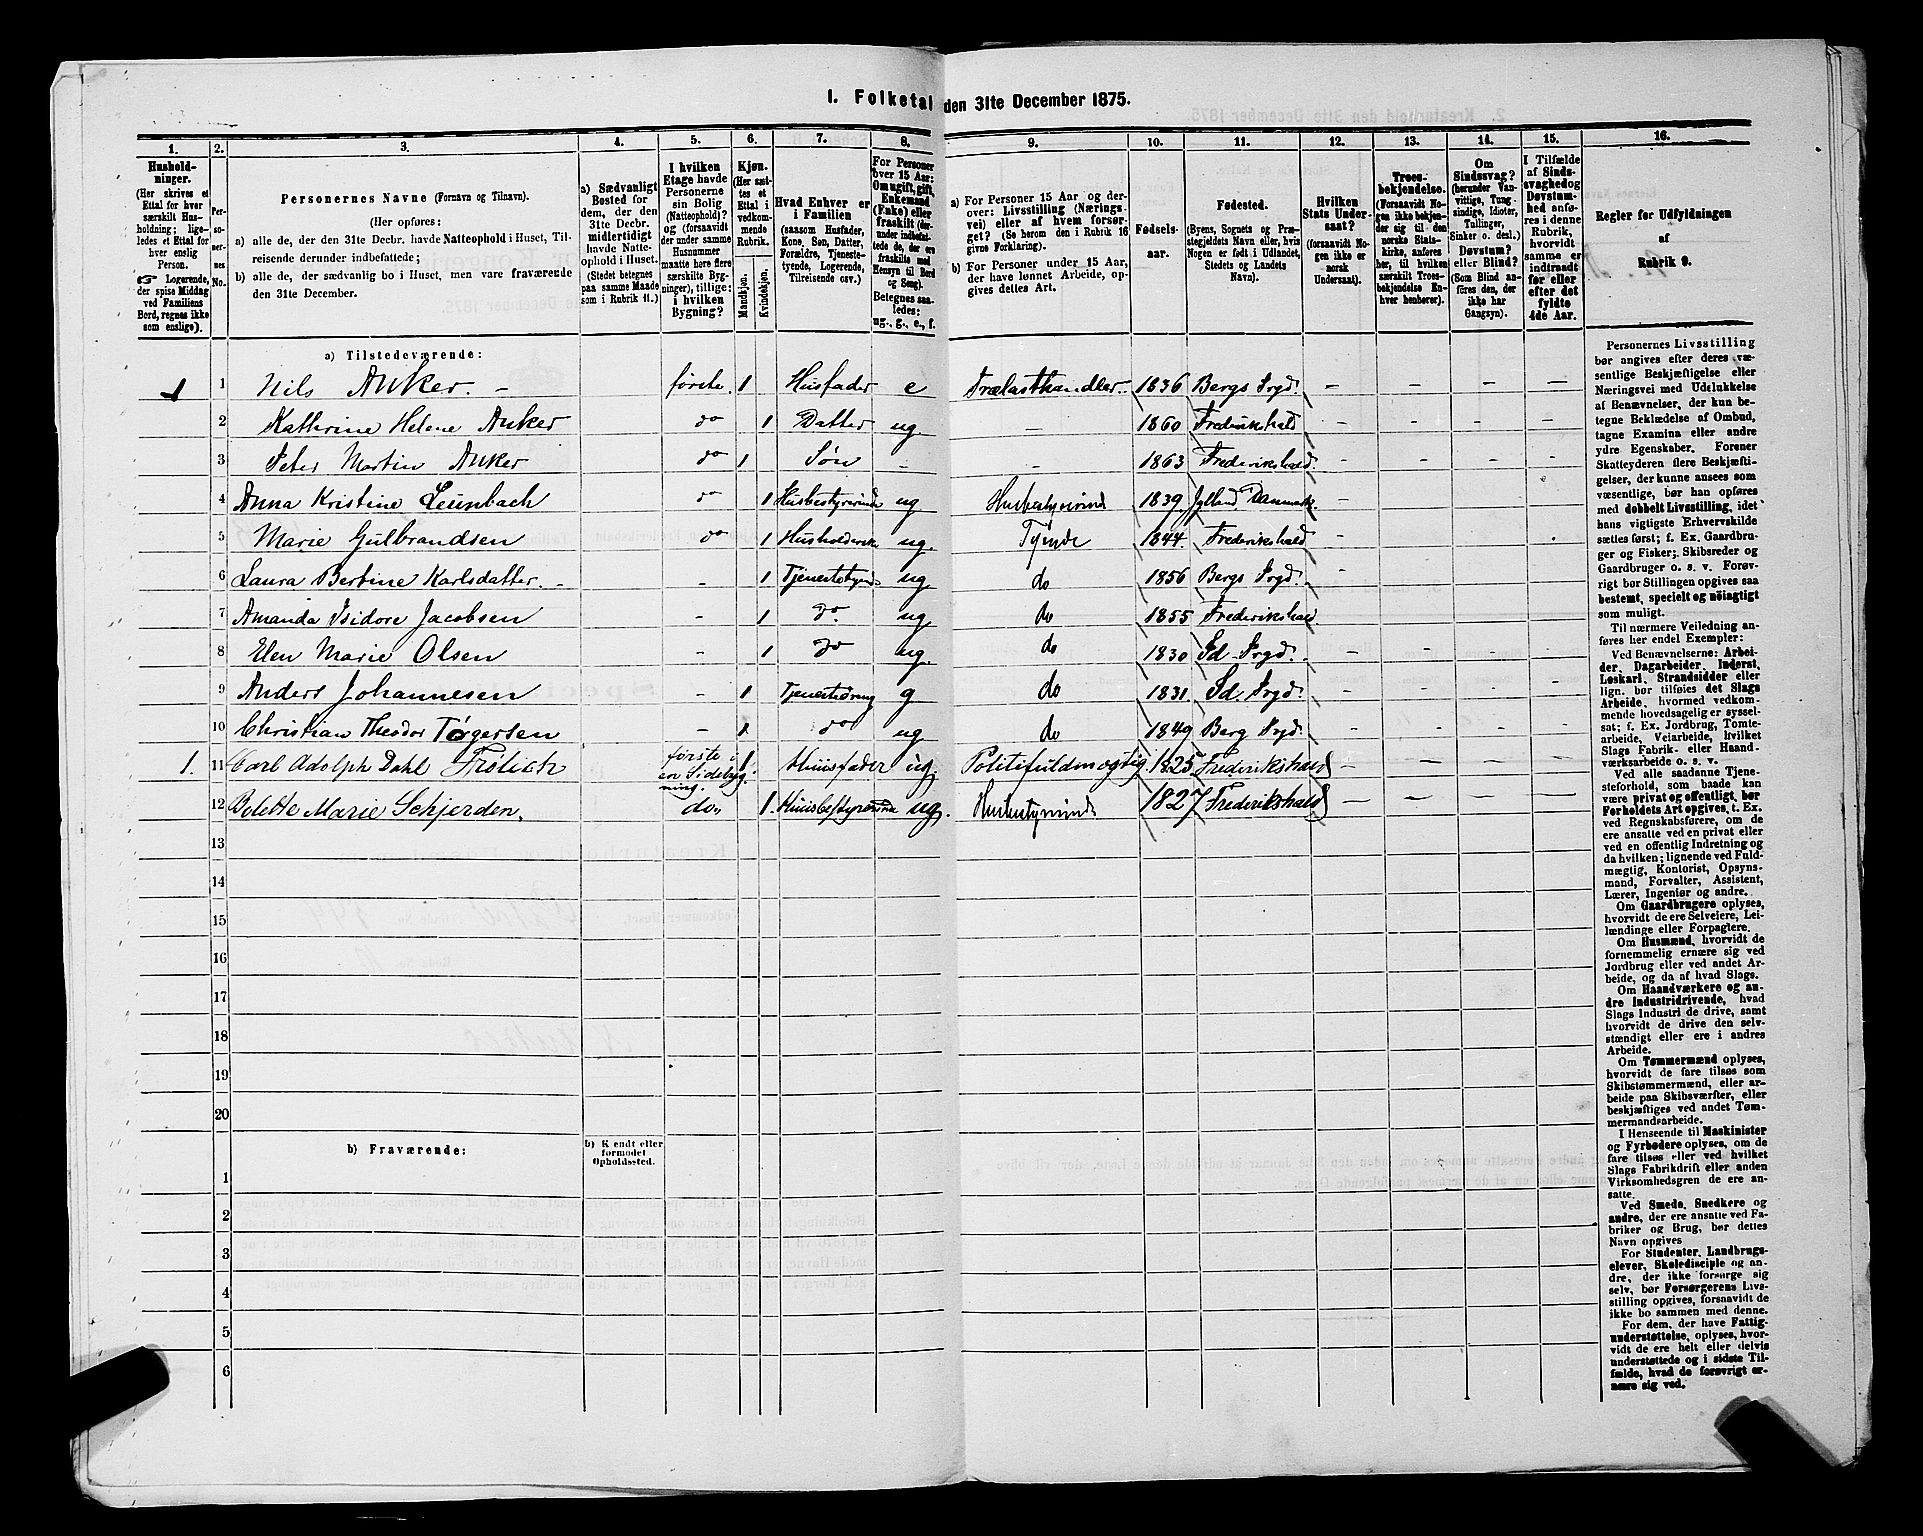 I. Folketal den 31te December 1875.
1. 2. 3. 4. 5. 6. 7. 8. 9. 10. 11. 12. 13. 14. 15. 16.
Hushold-
ninger.
(Her skrives et
Ettal for hver
særskilt Hus-
holdning; lige-
ledes et Ettal for
hver enslig
Person.
☞ Logerende,
der spise Middag
ved Familiens
Bord, regnes ikke
som enslige).
Per-
so-
ner-
nes
No.
Personernes Navne (Fornavn og Tilnavn).
(Her opføres:
a) alle de, der den 31te Decbr. havde Natteophold i Huset, Til-
reisende derunder indbefattede;
b) alle de, der sædvanlig bo i Huset, men vare fraværende
den 31te December.
a) Sædvanligt
Bosted for
dem, der den
31te Decbr.
midlertidigt
havde Natte-
ophold i Huset.
(Stedet betegnes
paa samme Maade
som i Rubrik 11.)
I hvilken
Etage havde
Personerne
sin Bolig
(Natteophold)?
og (forsaavidt
der under samme
Husnummer
maatte høre flere
særskilte Byg-
ninger), tillige:
i hvilken
Bygning?
Kjøn.
(Her sæt-
tes et
Ettal i
vedkom-
mende
Rubrik.
Mandkjøn.
Kvindekjøn.
Hvad Enhver er
i Familien
(saasom Husfader,
Kone, Søn, Datter,
Forældre, Tjeneste-
tyende, Logerende,
Tilreisende osv.)
For Personer
over 15 Aar:
Om ugift, gift,
Enkemand
(Enke) eller
fraskilt (der-
under indbefat-
tede de, der ere
fraskilte med
Hensyn til Bord
og Seng).
Betegnes saa-
ledes:
ug., g., e., f.
a) For Personer 15 Aar og der-
over: Livsstilling (Nærings-
vei) eller af hvem forsør-
get? (Se herom den i Rubrik 16
givne Forklaring).
b) For Personer under 15 Aar,
de have lønnet Arbeide, op-
gives dettes Art.
Fødsels-
aar.
Fødested.
(Byens, Sognets og Præ-
stegjeldets Navn eller, hvis
Nogen er født i Udlandet,
Stedets og Landets
Navn).
Hvilken
Stats Under-
saat?
(forsaavidt No-
gen ikke er
norsk
Undersaat).
Troes-
bekjendelse.
(Forsaavidt No-
gen ikke bekjen-
der sig til den
norske Stats-
kirke, anføres
her, til hvilken
særskilt Troes-
bekjendelse En-
hver henhører).
Om
Sindssvag?
(herunder Van-
vittige, Tung-
sindige, Idioter,
Tullinger,
Sinker o. desl.)
Døvstum?
eller Blind?
(Som Blind an-
føres den, der
ikke har
Gangsyn).
I Tilfælde
af Sinds-
svaghed og
Døvstum-
hed anfø-
res i denne
Rubrik,
hvorvidt
samme er
indtraadt
før eller
efter det
fyldte
4de Aar.
Regler for Udfyldningen
af
Rubrik 9.
a) Tilstedeværende:
1 1 Nils Anker. – første. 1 Husfader e Trælasthandler. 1836 Bergs Prgd. – – – –
2 Kathrine Helene Anker do 1 Datter ug – 1860 Frederikshald – – – –
3 Peter Martin Anker do 1 Søn – – 1863 Frederikshald. – – – –
4 Anna Kristine Leunbach do 1 Husbestyrerinde ug Husbestyrerind 1839. Jylland Danmark. –
5 Marie Gulbrandsen do 1 Husholderske ug. Tyende 1844. Frederikshald –
6 Laura Bertine Karlsdatter. – – 1 Tjenestetyende ug do 1856 Bergs Prgd. – – – –
7 Amanda Isidore Jacobsen – 1 do. ug do 1855 Frederikshald. – – – –
8 Elen Marie Olsen – 1 do ug. do 1830 Id Prgd. – – – –
9 Anders Johannesen – 1 Tjenestedreng g do 1831. Id. Prgd. – – – –
10 Christian Theodor Torgersen – 1 do ug do 1849 Berg Prgd. – – – –
1. 11 Carl Adolph Dahl Frölich første i en Sidebyg-ning. 1 Huusfader ug. Politifuldmægtig 1825 Frederikshald – – – –
12 Bolette Marie Schjerden, do, 1. Huusbestyrerinde ug. Husbestyrerinde 1827 Frederikshald – – – –
13
14
15
16
17
18
19
20
b) Fraværende:
b) Kjendt eller
formodet
Opholdssted.
1
2
3
4
5
6
Personernes Livsstilling
bør angives efter deres væ-
sentlige Beskjæftigelse eller
Næringsvei med Udelukkelse
af Benævnelser, der kun be-
tegne Beklædelse af Ombud,
tagne Examina eller andre
ydre Egenskaber. Forener
Skatteyderen flere Beskjæfti-
gelser, der kunne ansees som
væsentlige, bør han opføres
med dobbelt Livsstilling, idet
hans vigtigste Erhvervskilde
sættes først; f. Ex. Gaardbru-
ger og Fisker; Skibsreder og
Gaardbruger o. s. v. Forøv-
rigt bør Stillingen opgives saa
bestemt, specielt og nöiagtigt
som muligt.
Til nærmere Veiledning an-
føres her endel Exempler:
Ved Benævnelserne: Arbei-
der, Dagarbeider, Inderst,
Løskarl, Strandsidder eller
lign. bør tilføies det Slags
Arbeide, hvormed vedkom-
mende hovedsagelig er syssel-
sat; f. Ex. Jordbrug, Tomte-
arbeide, Veiarbeide, hvilket
Slags Fabrik- eller Haand-
værksarbeide o. s. v.
Ved alle saadanne Tjene-
steforhold, som baade kan
være privat og offentligt, bør
Forholdets Art opgives, t. Ex.
ved Regnskabsførere, om de
ere ansatte ved en privat eller
ved en offentlig Indretning og
da hvilken; lignende ved Fuld-
mægtig, Kontorist, Opsyns-
mand, Forvalter, Assistent,
Lærer, Ingeniør og andre.
Om Gaardbrugere oplyses,
hvorvidt de ere Selveiere, Lei-
lændinge eller Forpagtere.
Om Husmænd, hvorvidt de
fornemmelig ernære sig ved
Jordbrug eller ved andet Ar-
beide, og da af hvad Slags.
Om Haandværkere og an-
dre Industridrivende, hvad
Slags Industri de drive, samt
hvorvidt de drive den selv-
stændigt eller ere i andres
Arbeide.
Om Tømmermænd oplyses,
hvorvidt de fare tilsøs som
Skibstømmermænd, eller ar-
beide paa Skibsværfter, eller
beskjæftiges ved andet Tøm-
mermandsarbeide.
I Henseende til Maskinister
og Fyrbødere oplyses, om de
fare tilsøs eller ved hvilket
Slags Fabrikdrift eller anden
Virksomhedsgren de ere an-
satte.
Ved Smede, Snedkere og
andre, der ere ansatte ved Fa-
briker og Brug, bør dettes
Navn opgives
For Studenter, Landbrugs-
elever, Skoledisciple og an-
dre, der ikke forsørge sig
selv, bør Forsørgerens Livs-
stilling opgives, forsaavidt de
ikke bo sammen med denne.
For dem, der have Fattig-
understøttelse, oplyses, hvor-
vidt de ere helt eller delvis
understøttede og i sidste Til-
fælde, hvad de forøvrigt er-
nære sig ved.